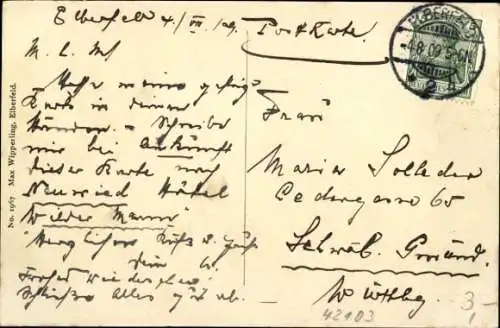 Elberfeld 4./VIII.09. Postkarte.
ELBERFELD
4.8.09
* 2 n
M. L. M!
Hoffe meine gestrige
Karte in deinen
Händen. – Schreibe
mir bei Ankunft
dieser Karte nach
Neuwied Hôtel
Wilder Mann
Herzlichen Kuß u. Gruß
Dein
Frohes Wiedersehen
Alles
Frau
Maria
Ledergasse 65
Schwäb. Gmünd.
Württbg.
42103
3,-
No. 1967 Max Wipperling, Elberfeld.